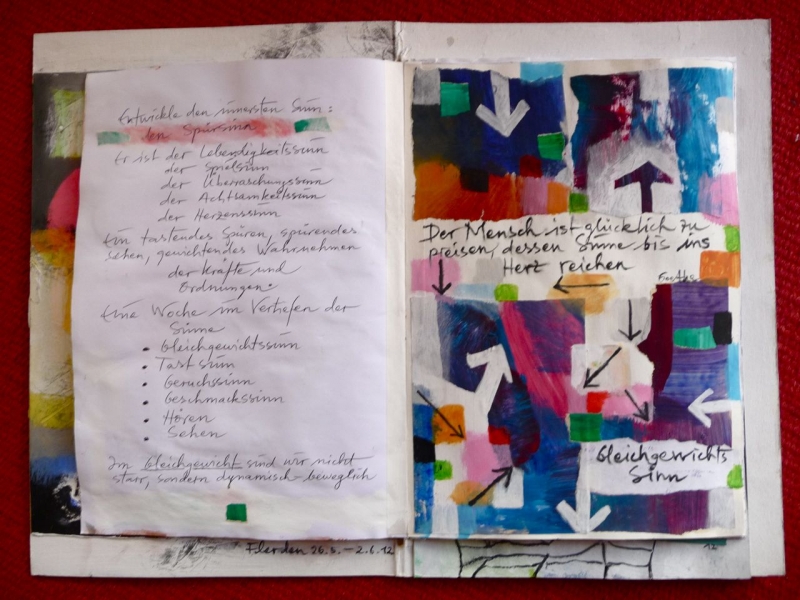 Entwickle den innersten Sinn:
den Spürsinn
Er ist der Lebendigkeitssinn
der Spielsinn
der Überraschungssinn
der Achtsamkeitssinn
der Herzenssinn
Ein tastendes Spüren, spürendes
sehen, gewichtendes Wahrnehmen
der Kräfte und
Ordnungen.
Eine Woche im Vertiefen der
Sinne
• Gleichgewichtssinn
• Tastsinn
• Geruchssinn
• Geschmackssinn
• Hören
• Sehen
Im Gleichgewicht sind wir nicht
starr, sondern dynamisch-beweglich
Flerden 26.5. – 2.6.12
Der Mensch ist glücklich zu
preisen, dessen Sinne bis ins
Herz reichen
Goethe
Gleichgewichts
Sinn
12